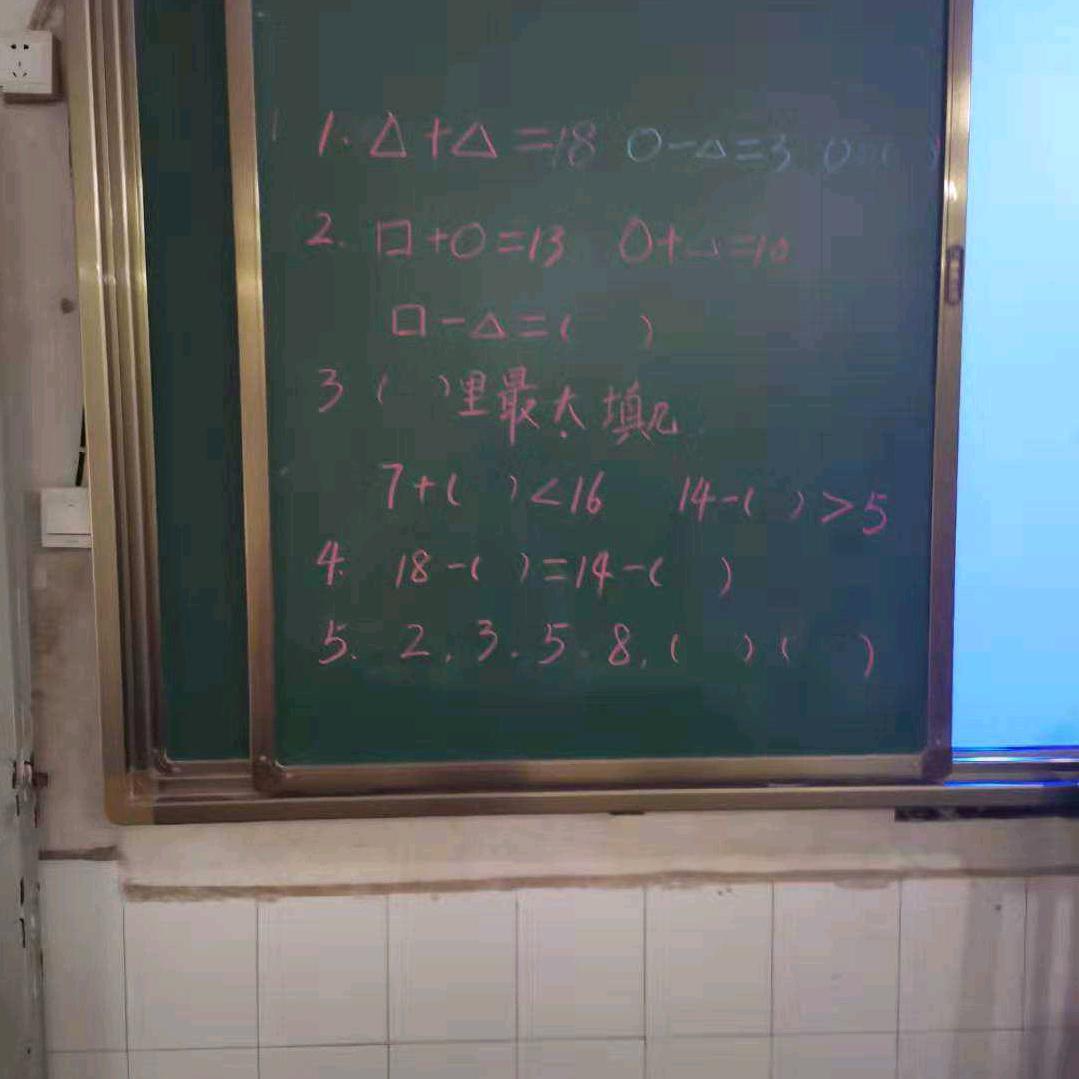 1. △+△=18 ○-△=3 ○=( )
2. □+○=13 ○+△=10
□-△=( )
3 ( )里最大填几
7+( )<16 14-( )>5
4. 18-( )=14-( )
5. 2.3.5.8.( )( )